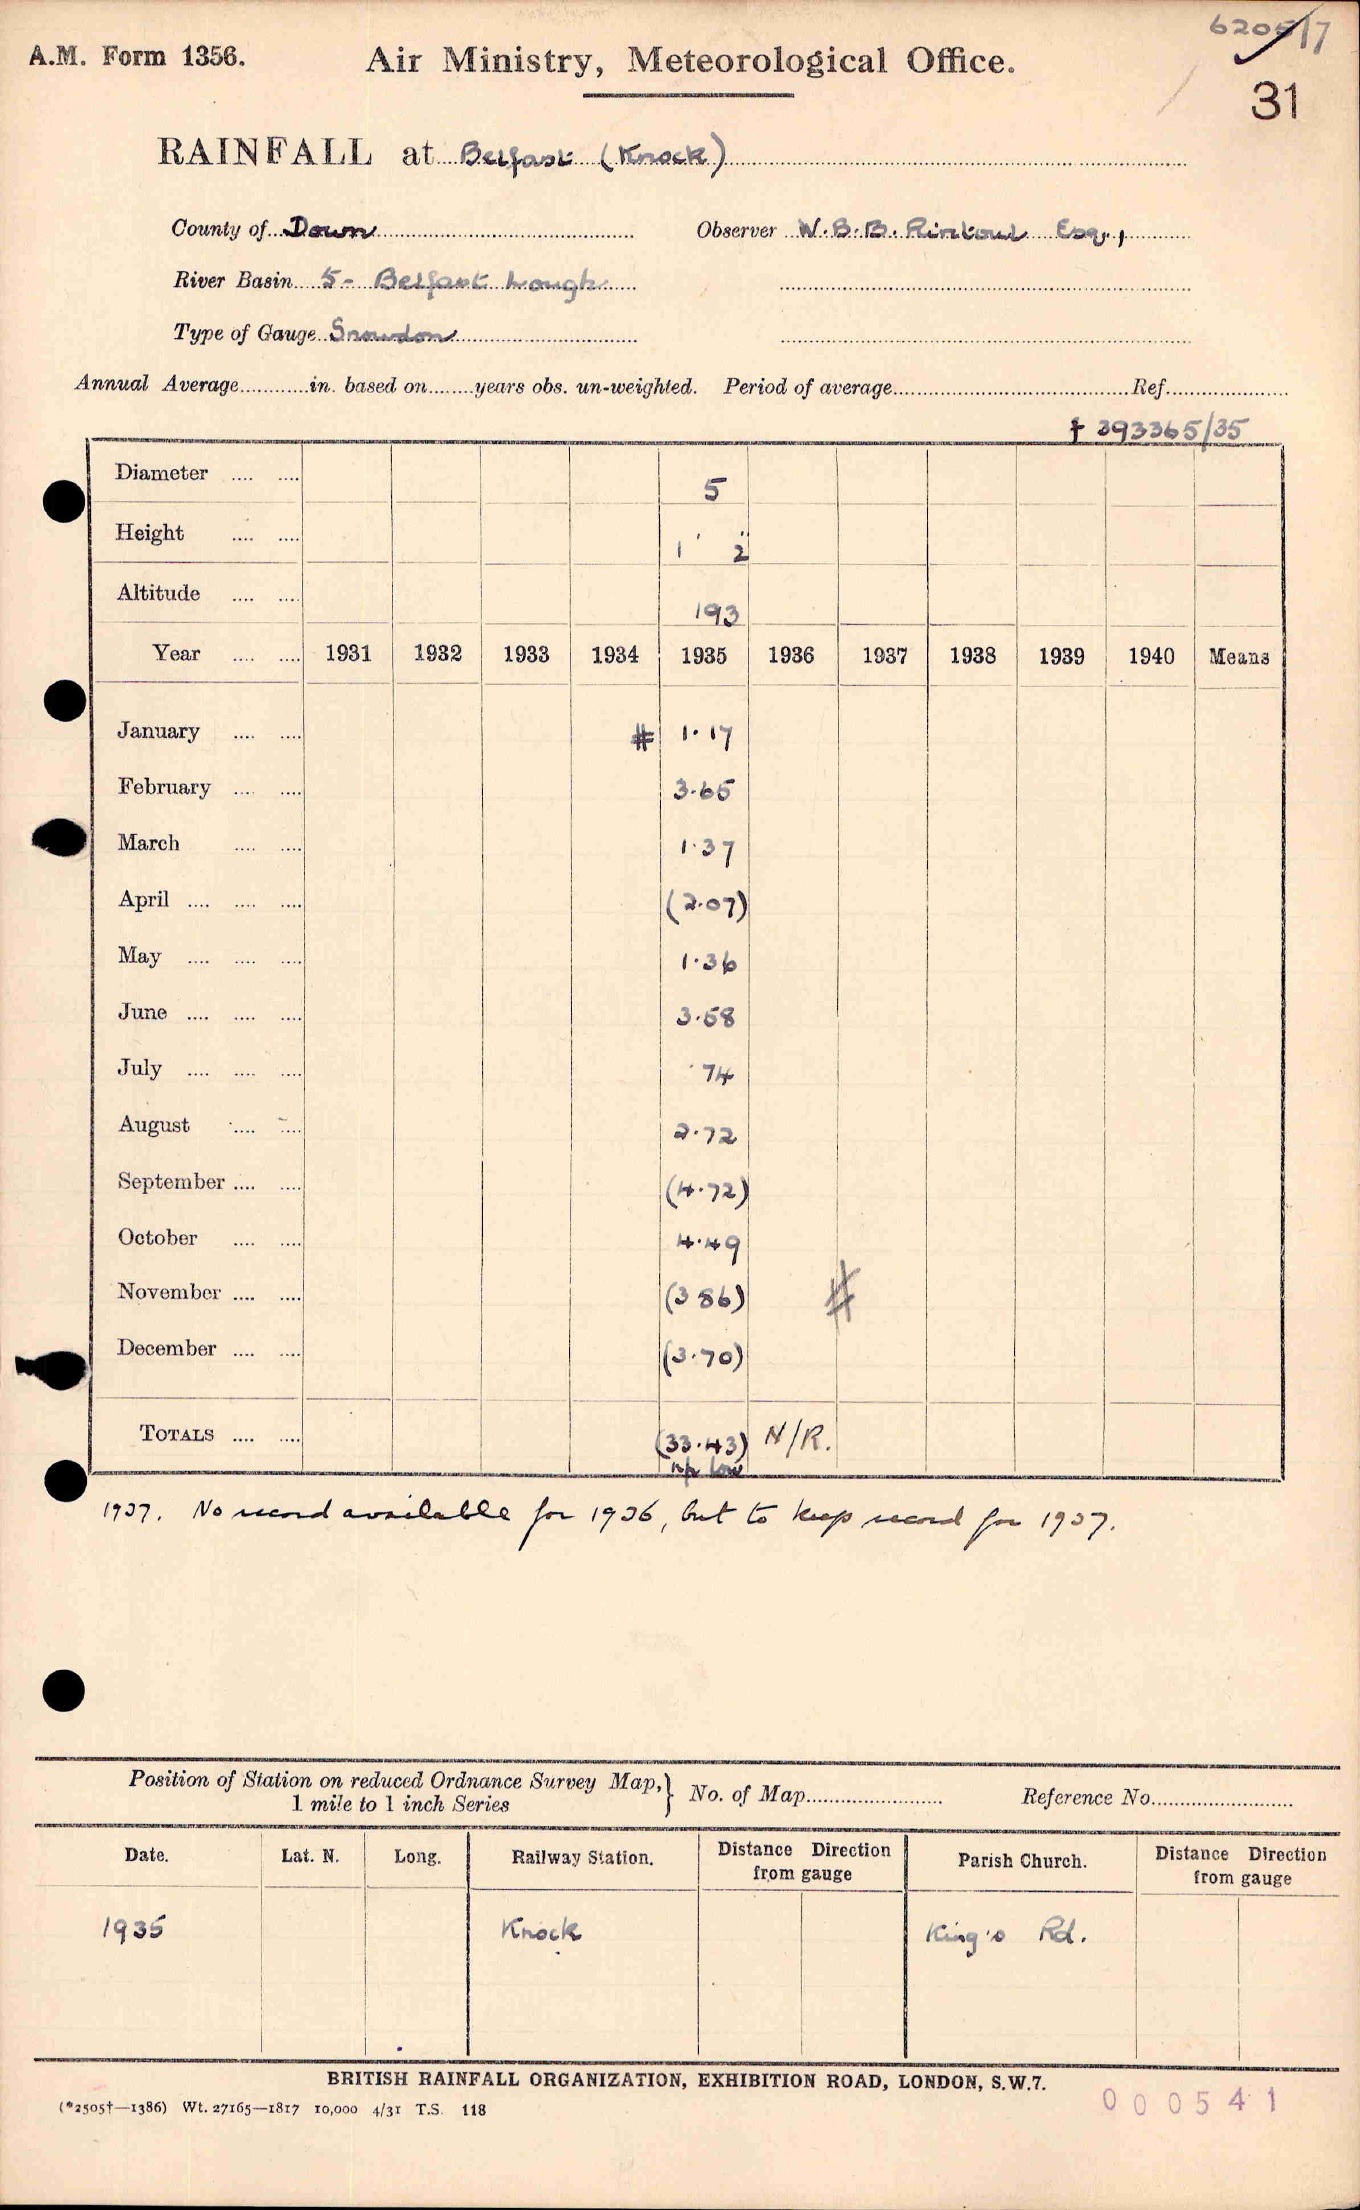 6205/17
A.M. Form 1356. Air Ministry, Meteorological Office.
31
RAINFALL at Belfast (Knock)
County of Down Observer W.B.B. Rintoul Esq.,
River Basin 5- Belfast Lough
Type of Gauge Snowdon
Annual Average in. based on years obs. un-weighted. Period of average Ref.
† 393365/35
Diameter 5
Height 1' 2"
Altitude 193
Year 1931 1932 1933 1934 1935 1936 1937 1938 1939 1940 Means
January # 1.17
February 3.65
March 1.37
April (2.07)
May 1.36
June 3.58
July .74
August 2.72
September (4.72)
October 4.49
November (3.86) #
December (3.70)
TOTALS (33.43) N/R.
n/p low
1937. No record available for 1936, but to keep record for 1937.
Position of Station on reduced Ordnance Survey Map, } No. of Map Reference No.
1 mile to 1 inch Series
Date. Lat. N. Long. Railway Station. Distance Direction from gauge Parish Church. Distance Direction from gauge
1935 Knock King's Rd.
BRITISH RAINFALL ORGANIZATION, EXHIBITION ROAD, LONDON, S.W.7.
(*2505†—1386) Wt. 27165—1817 10,000 4/31 T.S. 118
000541